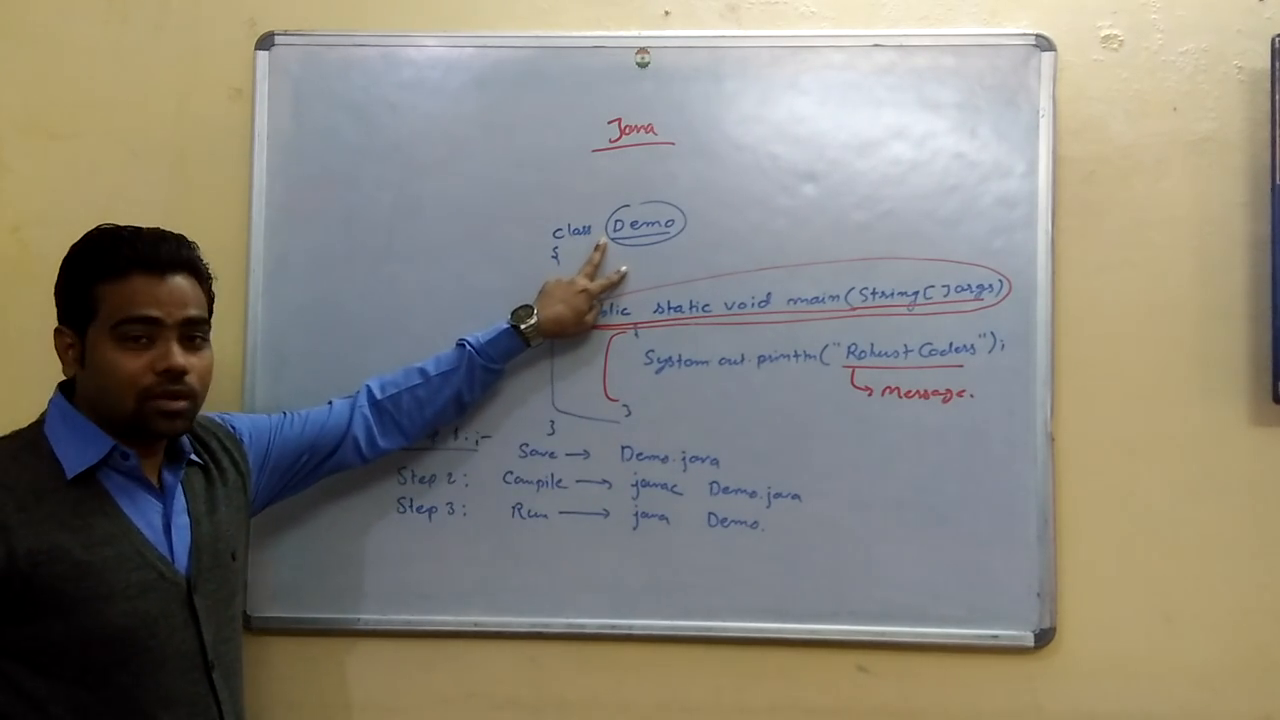 Java
class Demo
{
static void main(String[] args)
System.out.println("Robust Coders");
→ Message.
}
}
Save → Demo.java
Step 2: Compile → javac Demo.java
Step 3: Run → java Demo.